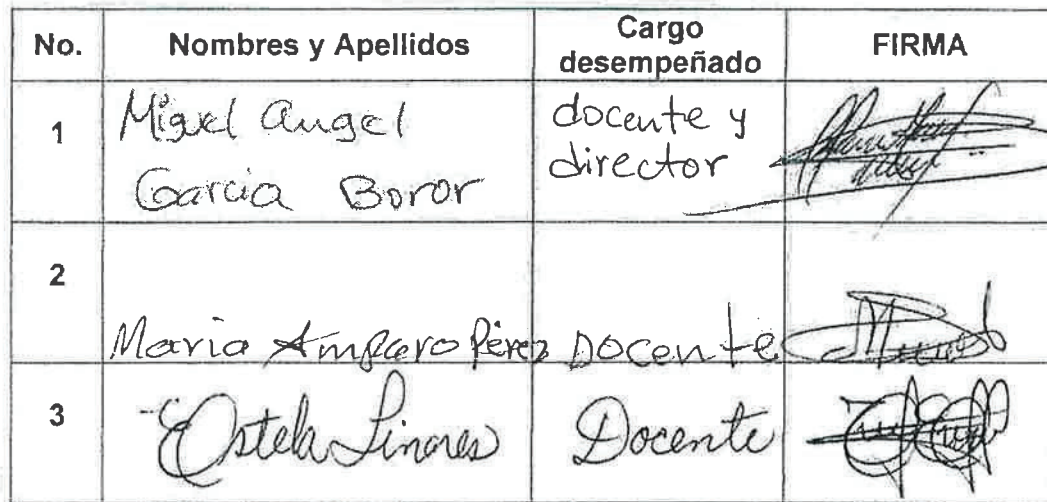 No. Nombres y Apellidos Cargo desempeñado FIRMA
1 Miguel Angel García Boror docente y director
2 Maria Amparo Pérez Docente
3 Estela Linares Docente